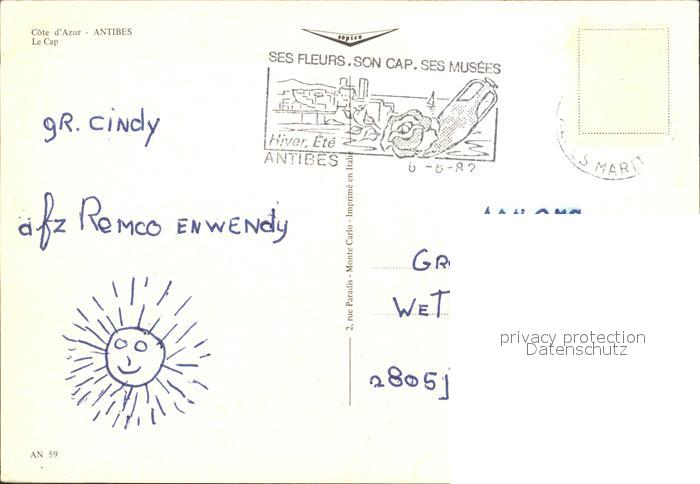 Côte d'Azur - ANTIBES
Le Cap
sopico
SES FLEURS. SON CAP. SES MUSÉES
Hiver, Été
ANTIBES
6 -8-82
MARIT
gR. Cindy
afz Remco en Wendy
2, rue Paradis - Monte Carlo - Imprimé en Italie
GR
WeT
2805
privacy protection
Datenschutz
AN 59